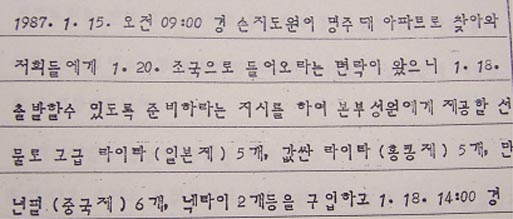 1987. 1. 15. 오전 09:00 경 손지도원이 명주 대 아파트로 찾아와
저희들에게 1. 20. 조국으로 들어오라는 련락이 왔으니 1. 18.
출발할수 있도록 준비하라는 지시를 하여 본부성원에게 제공할 선
물로 고급 라이타 (일본제) 5개, 값싼 라이타 (홍콩제) 5개, 만
년필 (중국제) 6개, 넥타이 2개등을 구입하고 1. 18. 14:00 경